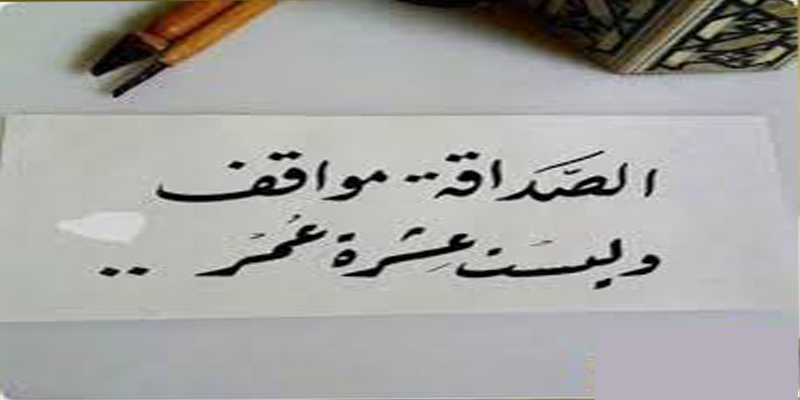 الصَّدَاقة .. مواقف
وليسَت عِشرة عُمَر ..